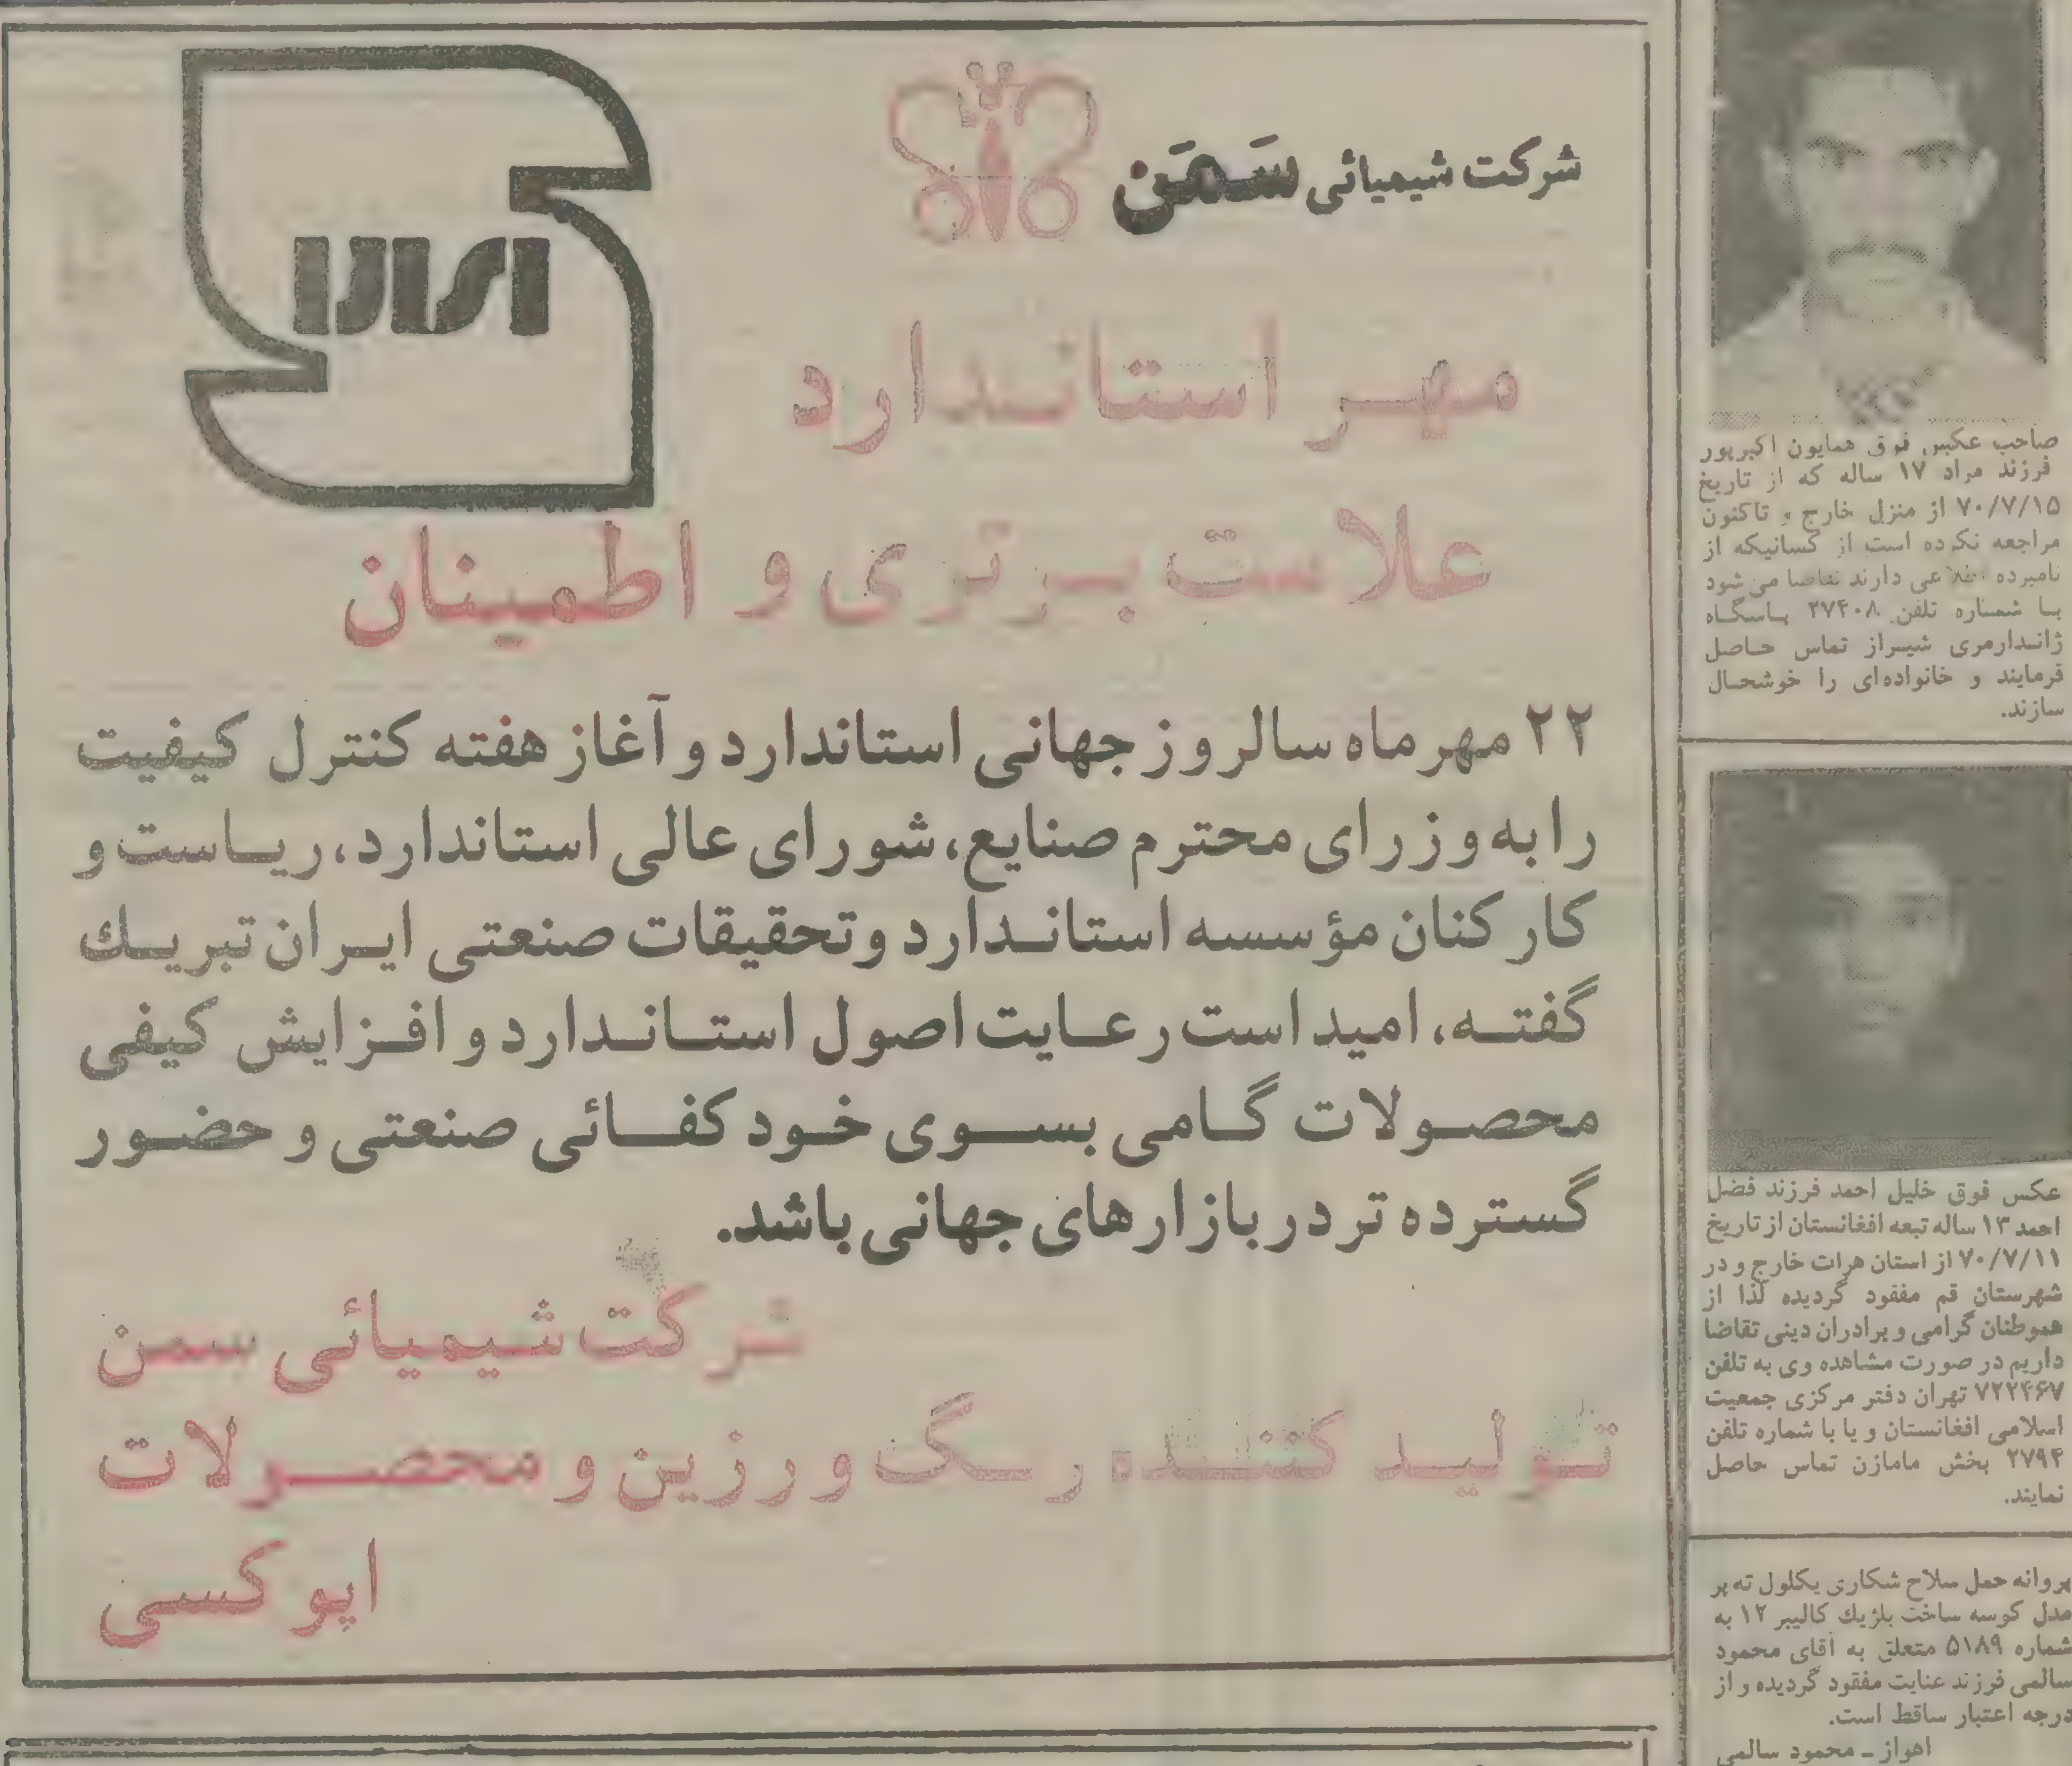 شرکت شیمیائی سَمَن
مهر استاندارد
علامت برتری و اطمینان
۲۲ مهرماه سالروز جهانی استاندارد و آغاز هفته کنترل کیفیت
را به وزرای محترم صنایع، شورای عالی استاندارد، ریاست و
کارکنان مؤسسه استاندارد و تحقیقات صنعتی ایران تبریك
گفته، امید است رعایت اصول استاندارد و افزایش کیفی
محصولات گامی بسوی خود کفائی صنعتی و حضور
گسترده تر در بازارهای جهانی باشد.
شرکت شیمیائی سمن
تولید کننده رنگ و رزین و محصولات
اپوکسی
صاحب عکس فوق همایون اکبرپور
فرزند مراد ۱۷ ساله که از تاریخ
۷۰/۷/۱۵ از منزل خارج و تاکنون
مراجعه نکرده است از کسانیکه از
نامبرده اطلاعی دارند تقاضا می‌شود
با شماره تلفن ۳۷۴۰۸ پاسگاه
ژاندارمری شیراز تماس حاصل
فرمایند و خانواده‌ای را خوشحال
سازند.
عکس فوق خلیل احمد فرزند فضل
احمد ۱۳ ساله تبعه افغانستان از تاریخ
۷۰/۷/۱۱ از استان هرات خارج و در
شهرستان قم مفقود گردیده لذا از
هموطنان گرامی و برادران دینی تقاضا
داریم در صورت مشاهده وی به تلفن
۷۲۲۴۶۷ تهران دفتر مرکزی جمعیت
اسلامی افغانستان و یا با شماره تلفن
۲۷۹۴ بخش مامازن تماس حاصل
نمایند.
پروانه حمل سلاح شکاری یکلول ته پر
مدل کوسه ساخت بلژیك کالیبر ۱۲ به
شماره ۵۱۸۹ متعلق به آقای محمود
سالمی فرزند عنایت مفقود گردیده و از
درجه اعتبار ساقط است.
اهواز ـ محمود سالمی